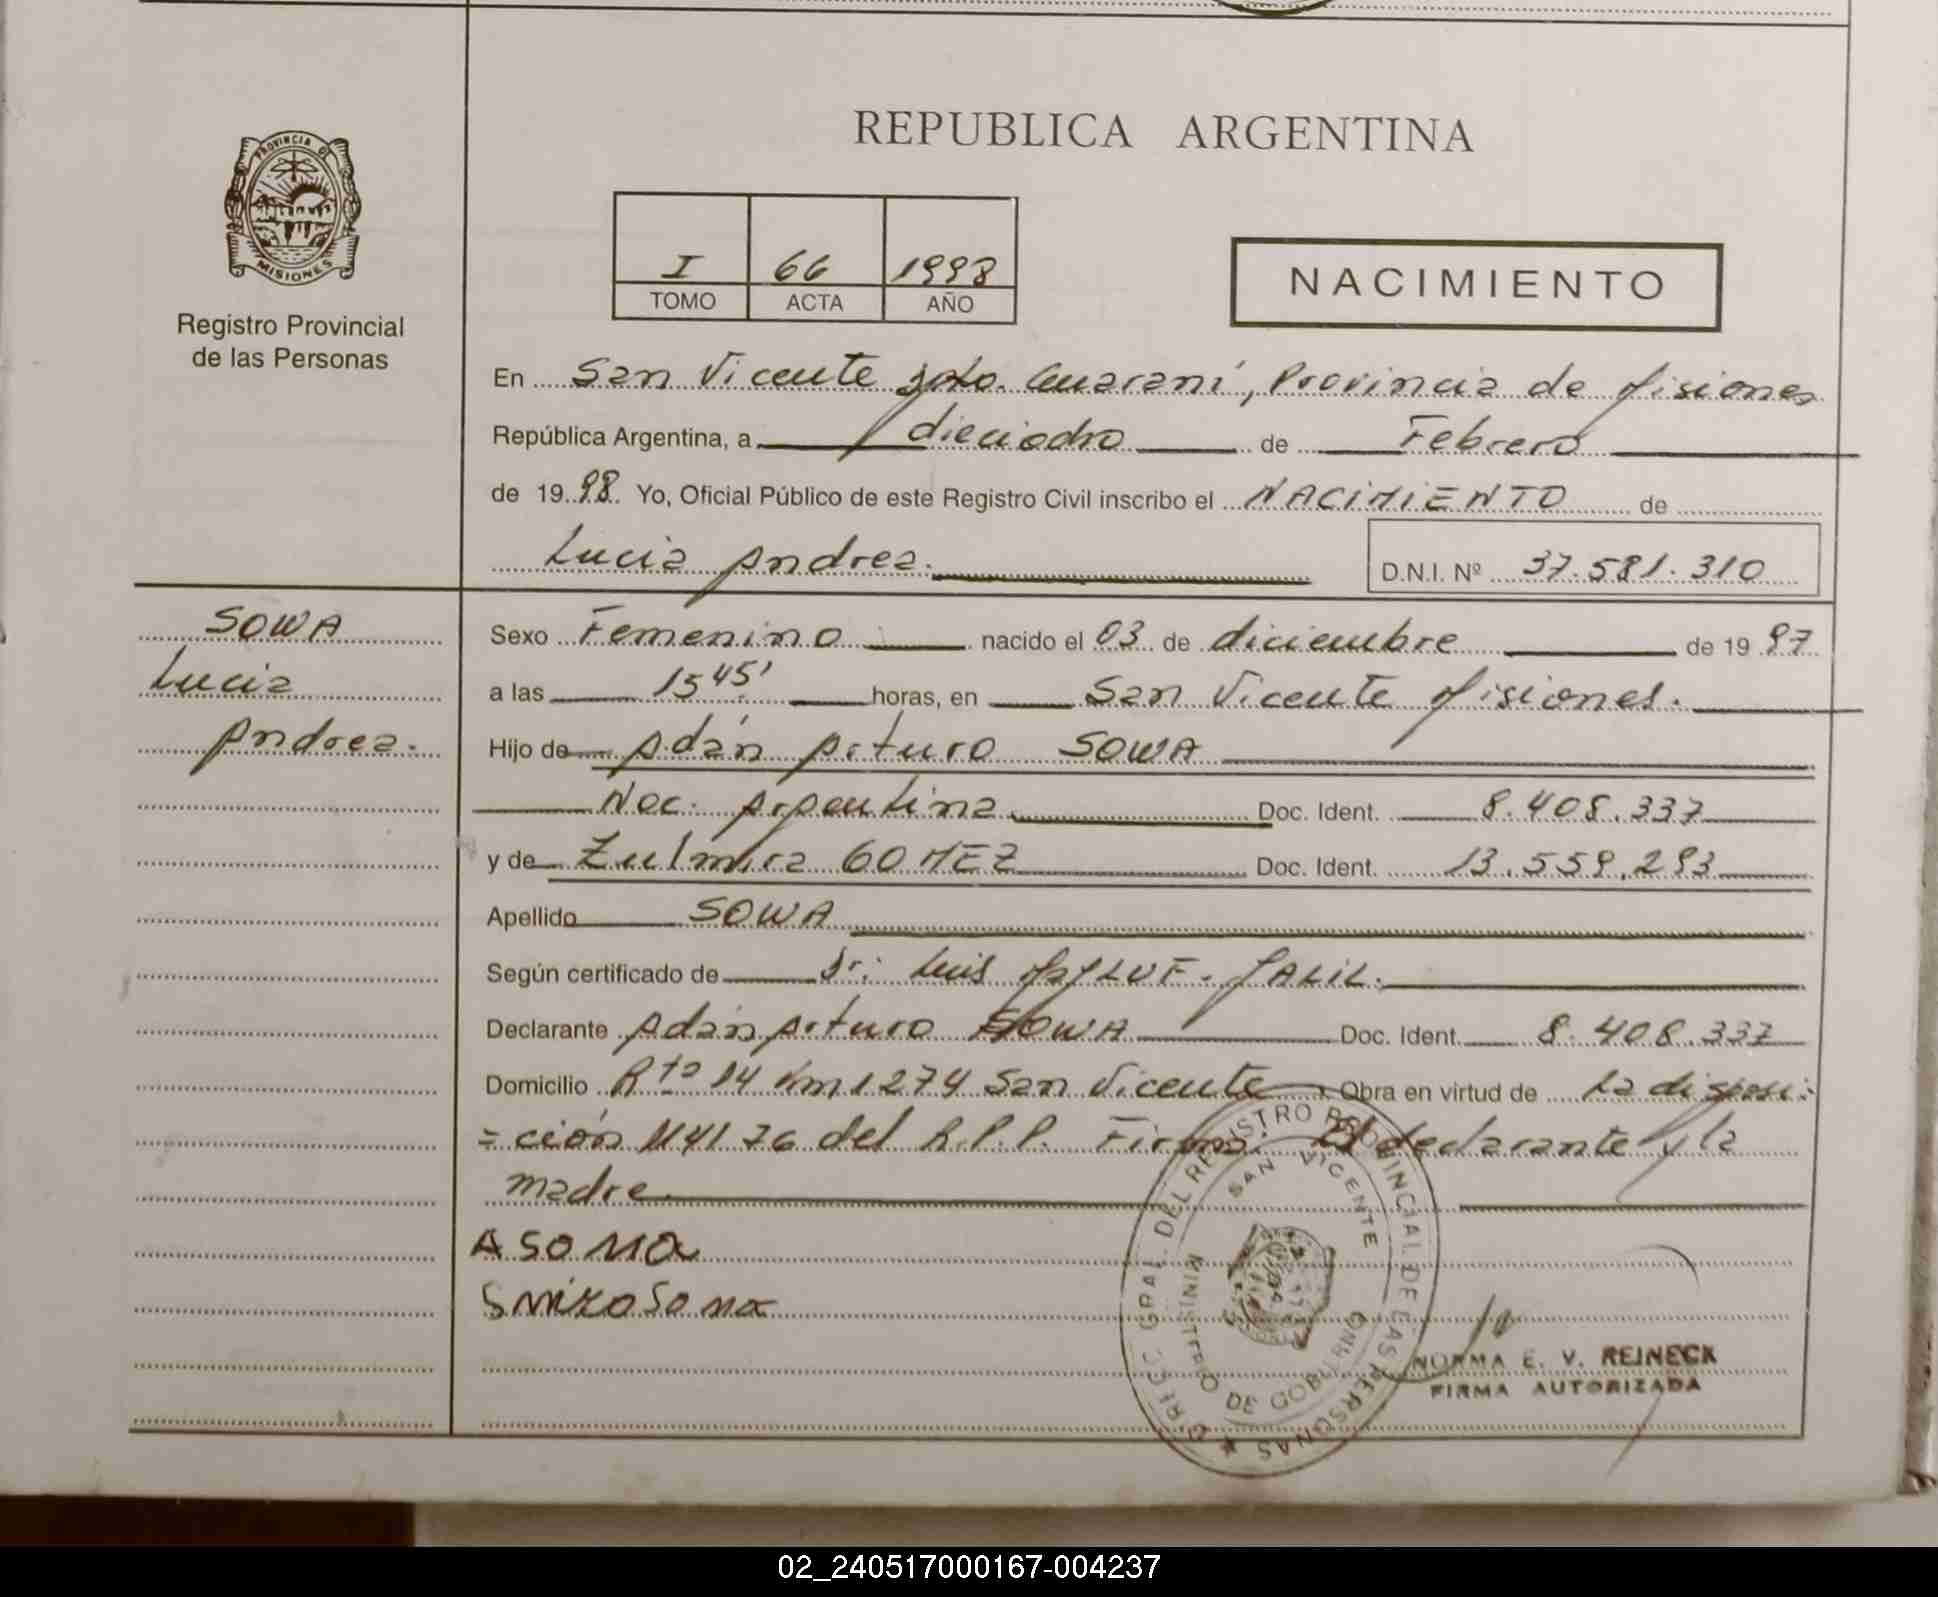 REPUBLICA ARGENTINA
PROVINCIA DE
MISIONES
Registro Provincial
de las Personas
I 66 1998
TOMO ACTA AÑO
NACIMIENTO
En San Vicente Dpto. Guaraní, Provincia de Misiones
República Argentina, a dieciocho de Febrero
de 1998 Yo, Oficial Público de este Registro Civil inscribo el NACIMIENTO de
Lucia Andrea. D.N.I. Nº 37.581.310
SOWA
Lucia
Andrea.
Sexo Femenino nacido el 03 de diciembre de 1997
a las 15 45' horas, en San Vicente Misiones.
Hijo de Adán Arturo SOWA
Nac. Argentina Doc. Ident. 8.408.337
y de Zulmira GOMEZ Doc. Ident. 13.559.293
Apellido SOWA
Según certificado de Dr: Luis JALIL.
Declarante Adán Arturo SOWA Doc. Ident. 8.408.337
Domicilio Rta 14 Km 1274 San Vicente Obra en virtud de la disposi-
=ción del R.P.P. Firma: El declarante y la
madre
A Sowa
DIREC. GRAL. DEL REGISTRO PROVINCIAL DE LAS PERSONAS
SAN VICENTE
MINISTERIO DE GOBIERNO
NORMA E. V. REINECK
FIRMA AUTORIZADA
02_240517000167-004237